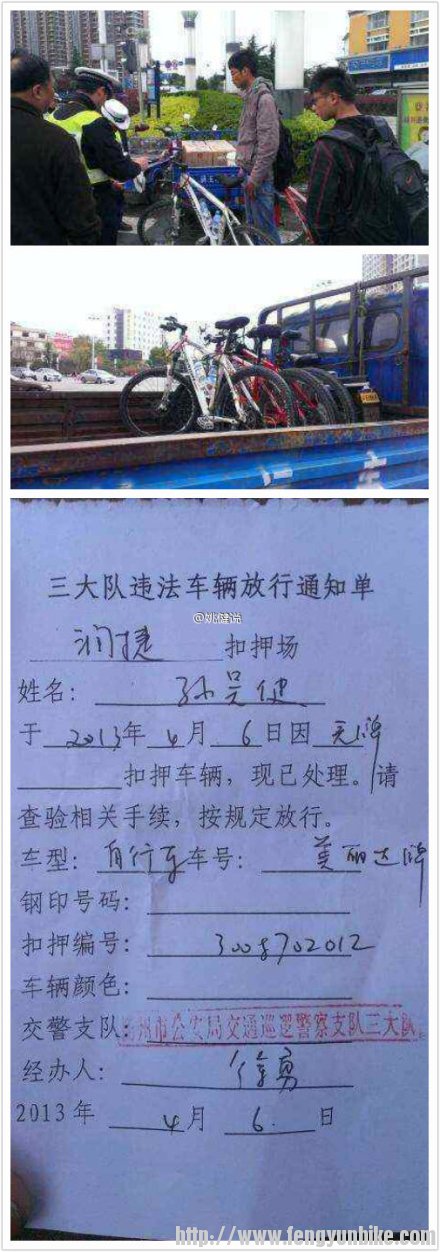 三大队违法车辆放行通知单
@姚健说
润捷 扣押场
姓名：孙吴健
于 2013年 4 月 6 日因 无牌
扣押车辆，现已处理。请
查验相关手续，按规定放行。
车型：自行车 车号：美丽达牌
钢印号码：
扣押编号：3008702012
车辆颜色：
交警支队：州市公安局交通巡逻警察支队三大队
经办人：徐勇
2013 年 4 月 6 日
http://www.fengyunbike.com